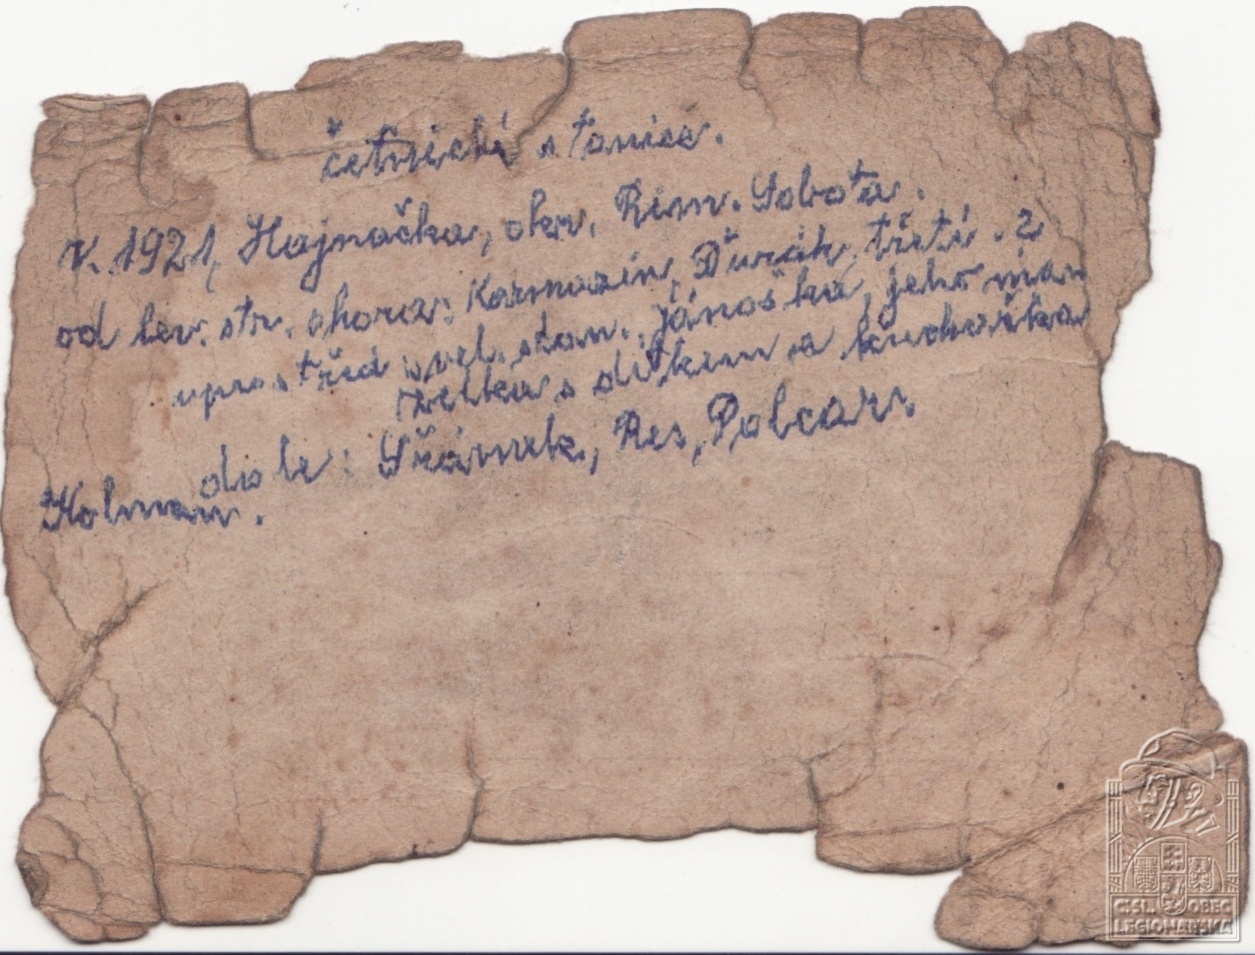 četnická stanice.
r. 1921, Hajnačka, okr. Rim. Sobota.
od lev. str. shora: Karmazín, Ďurák, třetí . ?
uprostřed: vel. stan. Jánoška, jeho man
želka s dítkem a kuchařka
dole: Sřámek, Res, Polcar,
Holman.
ČSL. OBEC
LEGIONÁŘSKÁ